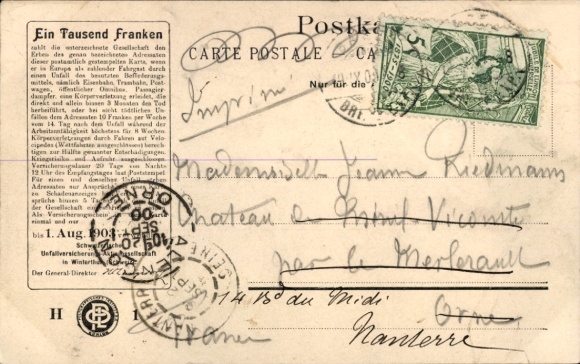 Ein Tausend Franken
zahlt die unterzeichnete Gesellschaft den
Erben des genau bezeichneten Adressaten
dieser postamtlich gestempelten Karte, wenn
er in Europa als zahlender Fahrgast durch
einen Unfall des benutzten Beförderungs-
mittels, nämlich Eisenbahn, Trambahn, Post-
wagen, öffentlicher Omnibus, Passagier-
dampfer, eine Körperverletzung erleidet, die
direkt und allein binnen 3 Monaten den Tod
herbeiführt, oder bei nicht tödtlichen Un-
fällen dem Adressaten 10 Franken per Woche
vom 14 Tag nach dem Unfall während der
Arbeitsunfähigkeit höchstens für 8 Wochen.
Körperverletzungen durch Fahren auf Velo-
cipedes (Wettfahrten ausgeschlossen) berech-
tigen zur Hälfte genannter Entschädigungen.
Kriegsrisiko und Aufruhr ausgeschlossen.
Versicherungsdauer 20 Tage von Nachts
12 Uhr des Empfangstages laut Poststempel
Für einen und denselben Unfall
Adressaten zur
zu Schadenanzeigen
sprüche binnen 5
der Gesellschaft
Als Versicherungsschein
einmal und nur
bis 1. Aug. 1903
Unfallversicherungs-Aktiengesellschaft
in Winterthur
Der General-Direktor
H
Postka
CARTE POSTALE CA
Nur für die
Imprimé
5
Mademoiselle Jeanne Riedmann
Château de Ménil-Vicomte
par le Merlerault
Orne
14 Bd du Midi
Nanterre
France
ORNE
SEPT
00
NANTERRE
SEINE